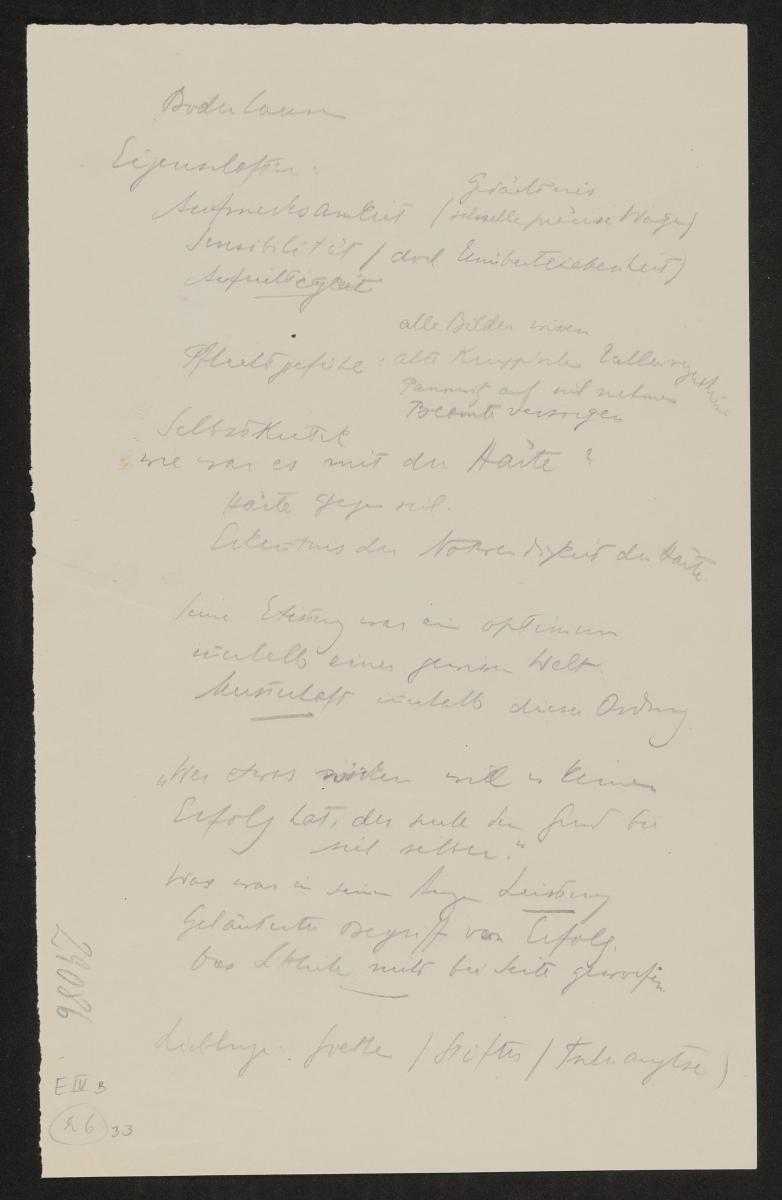 Bodenhausen
Eigenschaften:
Gedächtnis
Aufmerksamkeit (schnelle präzise Wage)
Sensibilität / doch Unübertriebenheit)
Aufrichtigkeit
alle Bilder wissen
Pflichtgefühl: alte Kruppische
auf sich nehmen
Beamte versorgen
Selbstkritik
wie war es mit der Härte?
Härte gegen sich.
Erkenntnis der Notwendigkeit der Härte.
Seine Leistung war ein optimum
innerhalb einer gewissen Welt.
Musterhaft innerhalb dieser Ordnung
„Wer etwas wirken will u keinen
Erfolg hat, der suche den Grund bei
sich selber."
Was war in seinen Augen Leistung
Geläuterter Begriff von Erfolg.
Das Ethische nicht bei Seite geworfen.
Lieblinge: Goethe / Stifter / Tschuangtse)
29086
E IV B
26 33